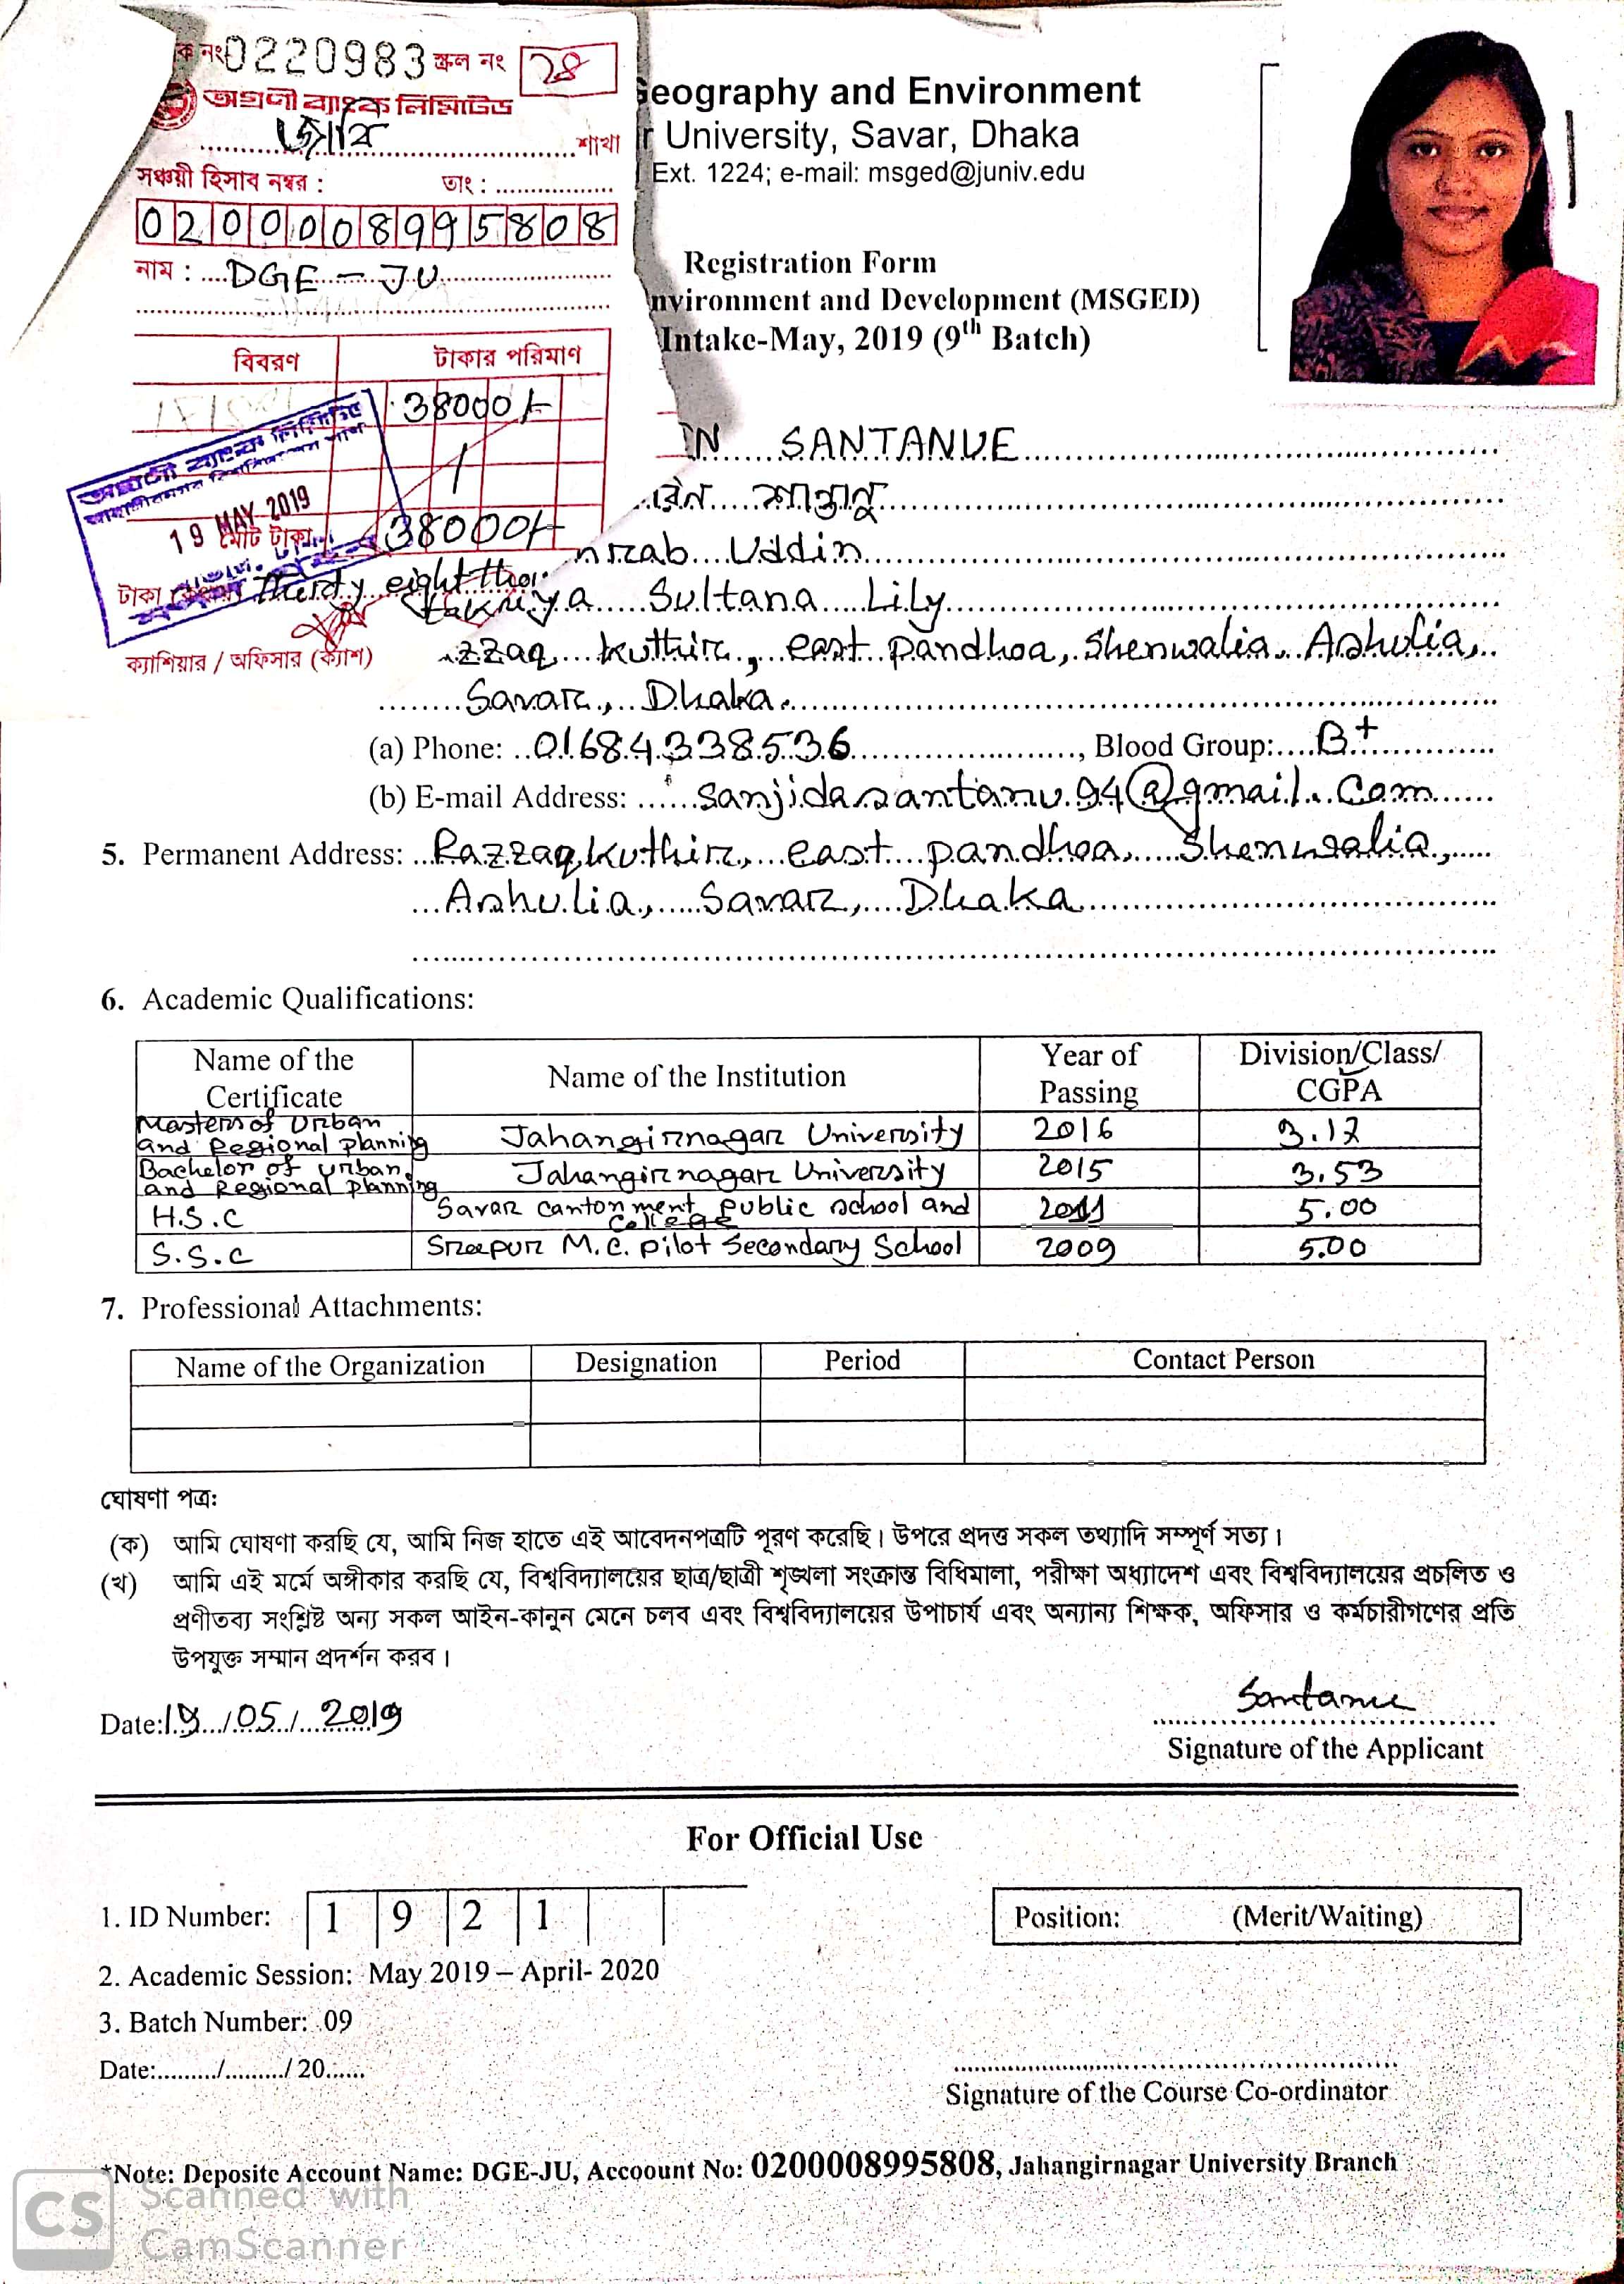 নং 0220983 স্ক্রল নং 28
অগ্রণী ব্যাংক লিমিটেড
জাবি শাখা
সঞ্চয়ী হিসাব নম্বর : তাং :
0200008995808
নাম : DGE - JU
বিবরণ টাকার পরিমাণ
38000/-
অগ্রণী ব্যাংক লিমিটেড
19 MAY 2019
মোট টাকা 38000/-
টাকা Thirdy eight
ক্যাশিয়ার / অফিসার (ক্যাশ)
Geography and Environment
University, Savar, Dhaka
Ext. 1224; e-mail: msged@juniv.edu
Registration Form
nvironment and Development (MSGED)
Intake-May, 2019 (9th Batch)
IN SANTANUE
রেন শান্তানু
Uddin
Sultana Lily
zzaq Kuthir, east pandhoa, Shenwalia, Ashulia,
Savar, Dhaka.
(a) Phone: 01684338536, Blood Group: B+
(b) E-mail Address: sanjidasantanu.94@gmail.Com
5. Permanent Address: Razzaq kuthir, east pandhoa, Shenwalia,
Ashulia, Savar, Dhaka
6. Academic Qualifications:
Name of the Certificate Name of the Institution Year of Passing Division/Class/ CGPA
Masters of Urban and Regional planning Jahangirnagar University 2016 3.17
Bachelor of urban and Regional planning Jahangirnagar University 2015 3.53
H.S.C Savar cantonment public school and College 2011 5.00
S.S.C Sreepur M.C. pilot Secondary School 2009 5.00
7. Professional Attachments:
Name of the Organization Designation Period Contact Person
ঘোষণা পত্র:
(ক) আমি ঘোষণা করছি যে, আমি নিজ হাতে এই আবেদনপত্রটি পূরণ করেছি। উপরে প্রদত্ত সকল তথ্যাদি সম্পূর্ণ সত্য।
(খ) আমি এই মর্মে অঙ্গীকার করছি যে, বিশ্ববিদ্যালয়ের ছাত্র/ছাত্রী শৃঙ্খলা সংক্রান্ত বিধিমালা, পরীক্ষা অধ্যাদেশ এবং বিশ্ববিদ্যালয়ের প্রচলিত ও
প্রণীতব্য সংশ্লিষ্ট অন্য সকল আইন-কানুন মেনে চলব এবং বিশ্ববিদ্যালয়ের উপাচার্য এবং অন্যান্য শিক্ষক, অফিসার ও কর্মচারীগণের প্রতি
উপযুক্ত সম্মান প্রদর্শন করব।
Santanue
Date: 19/05/2019
Signature of the Applicant
For Official Use
1. ID Number: 1 9 2 1 Position: (Merit/Waiting)
2. Academic Session: May 2019 – April- 2020
3. Batch Number: 09
Date:........./........./ 20......
Signature of the Course Co-ordinator
*Note: Deposite Account Name: DGE-JU, Accoount No: 0200008995808, Jahangirnagar University Branch
CS Scanned with
CamScanner